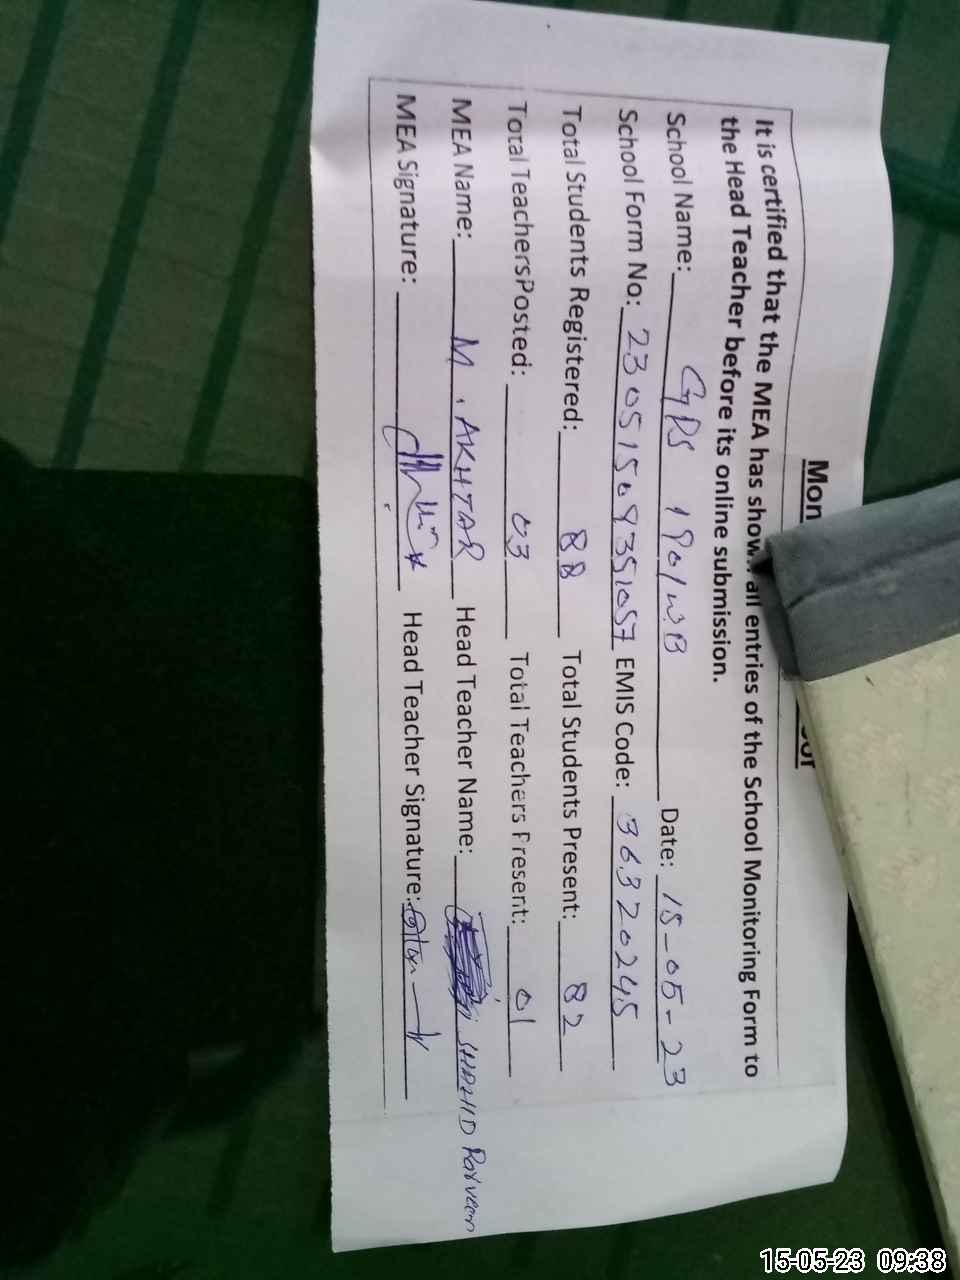 Mon
It is certified that the MEA has show all entries of the School Monitoring Form to
the Head Teacher before its online submission.
School Name: GPS 190/WB Date: 15-05-23
School Form No: EMIS Code: 36320245
Total Students Registered: 88 Total Students Present: 82
Total TeachersPosted: 03 Total Teachers Present: 01
MEA Name: M. AKHTAR Head Teacher Name: SHAHID Parveen
MEA Signature: Head Teacher Signature:
15-05-23 09:38